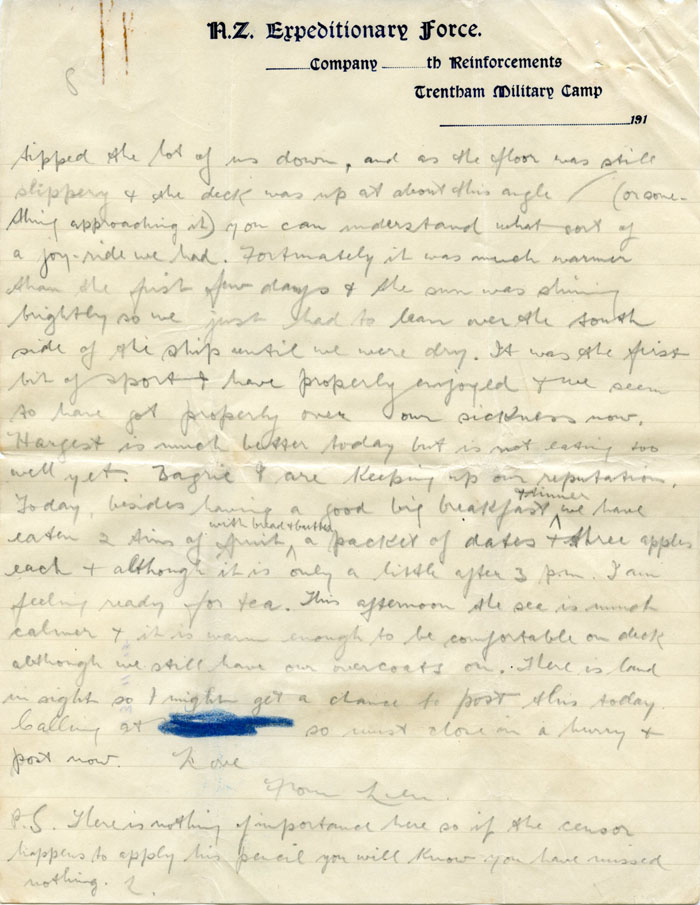 8
N.Z. Expeditionary Force.
Company th Reinforcements
Trentham Military Camp
191
tipped the lot of us down, and as the floor was still
slippery & the deck was up at about this angle / (or some-
thing approaching it) you can understand what sort of
a joy-ride we had. Fortunately it was much warmer
than the first few days & the sun was shining
brightly so we just had to lean over the south
side of the ship until we were dry. It was the first
bit of sport I have properly enjoyed & we seem
to have got properly over our sickness now.
Hargest is much better today but is not eating too
well yet. Bagrie & I are keeping up our reputation.
Today, besides having a good big breakfast & dinner we have
eaten 2 tins of fruit with bread & butter, a packet of dates & three apples
each & although it is only a little after 3 p.m. I am
feeling ready for tea. This afternoon the sea is much
calmer & it is warm enough to be comfortable on deck
although we still have our overcoats on. There is land
in sight so I might get a chance to post this today
Calling at so must close in a hurry &
post now. Love
From Len.
P.S. There is nothing of importance here so if the censor
happens to apply his pencil you will know you have missed
nothing. L.